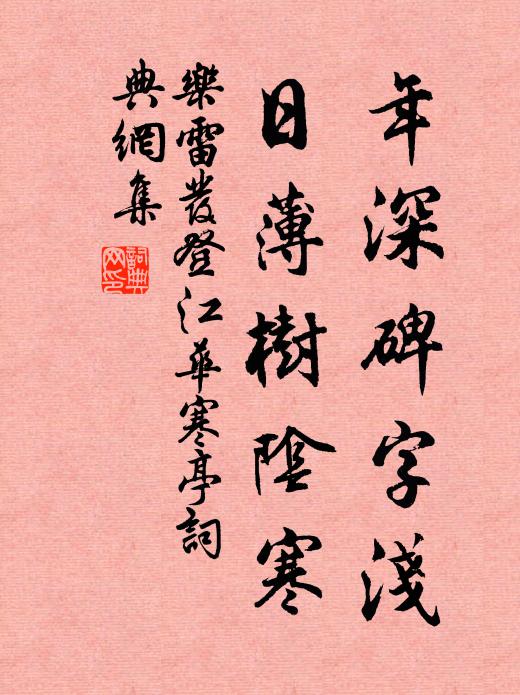 年深碑字淺
日薄樹陰寒
樂雷發登江華寒亭詞
典網集
詞典
网印